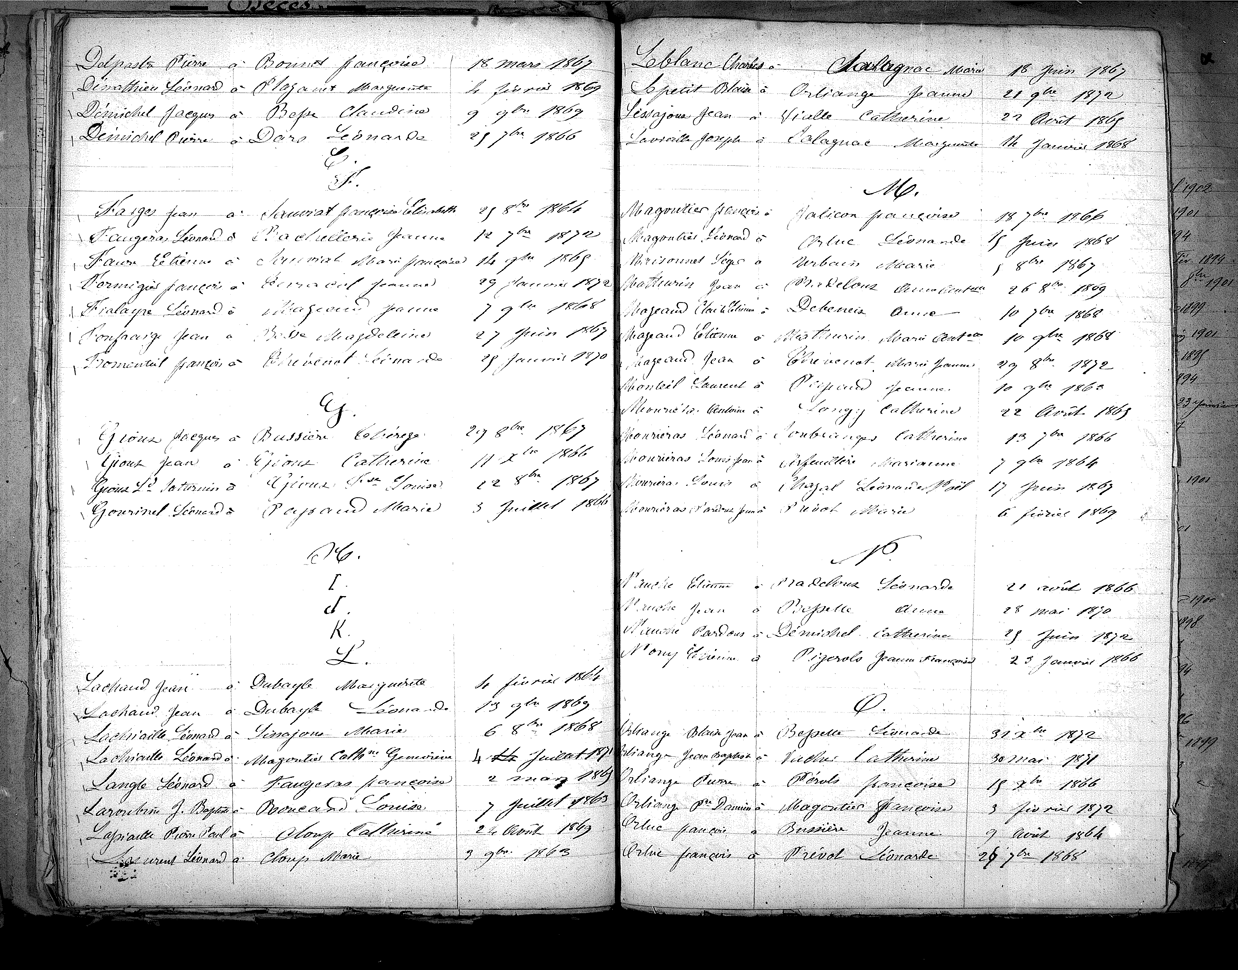 Décès
Delpasta Pierre à Bonnet françoise 18 mars 1867
Dimathieu Léonard à Plazanet Marguerite 4 février 1869
Démichel Jacques à Besse Claudine 9 9bre 1869
Démichel Pierre à Dars Léonarde 25 7bre 1866
E.
F.
Farges Jean à françoise Elisabeth 25 8bre 1864
Faugeras Léonard à Jeanne 12 7bre 1872
Faure Etienne à Marie françoise 14 9bre 1865
Formigier françois à Jeanne 29 Janvier 1872
Fialayre Léonard à Mazeaud Jeanne 7 9bre 1868
Jean à Magdeleine 27 Juin 1867
Fromenteil françois à Chevenot Léonarde 25 Janvier 1870
G.
Gioux Jacques à Bussière Thérèse 29 8bre 1867
Gioux Jean à Gioux Catherine 11 Xbre 1866
Gioux Saturnin à Gioux Louise 22 8bre 1867
Gourinel Léonard à Papaud Marie 3 Juillet 1866
H.
I.
J.
K.
L.
Lachaud Jean à Dubayle Marguerite 4 février 1864
Lachaud Jean à Dubayle Léonarde 13 9bre 1869
Lachiaille Léonard à Lessajou Marie 6 8bre 1868
Lachiaille Léonard à Magontier Cathne Geneviève 4 Juillet 1871
Langle Léonard à Faugeras françoise 2 mars 1865
J. Baptiste à Boucard Louise 7 Juillet 1863
Pierre Paul à Cloup Catherine 24 Août 1869
Laurent Léonard à Cloup Marie 9 9bre 1863
Leblanc Charles à Salagnac Marie 18 Juin 1867
Lepetit Blaise à Orliange Jeanne 21 9bre 1872
Lessajou Jean à Viselle Catherine 22 Août 1865
Joseph à Salagnac Marguerite 14 Janvier 1868
M.
Magontier françois à Jalicon françoise 18 7bre 1866
Magontier Léonard à Orluc Léonarde 15 Juin 1868
Marsonnet à Urbain Marie 5 8bre 1867
Mathurin Jean à Pradeloux 26 8bre 1869
Mazeaud Etienne à Debeneix Anne 10 7bre 1868
Mazeaud Etienne à Mathurin Marie 10 9bre 1868
Mazeaud Jean à Chevenot Marie Jeanne 29 8bre 1872
Monteil Laurent à Papaud Jeanne 10 9bre
Antoine à Longy Catherine 22 Août 1865
Mourieras Léonard à Catherine 13 7bre 1866
Mourieras Louis Jean à Marianne 7 9bre 1864
Mourieras Louis à Chazal Léonarde 17 Juin 1867
Mourieras Pardoux Jean à Prévot Marie 6 février 1869
N.
Nauche Etienne à Pradeloux Léonarde 21 août 1866
Nauche Jean à Besselle Anne 28 mai 1870
Nauche Pardoux à Démichel Catherine 25 Juin 1872
Nony Etienne à Pigerols Jeanne Françoise 23 Janvier 1866
O.
Orliange Blaise Jean à Besselle Léonarde 31 Xbre 1872
Orliange Jean Baptiste à Catherine 30 mai 1871
Orliange Pierre à Pérols françoise 15 Xbre 1866
Orliange Pre Damien à Magontier françoise 3 février 1872
Orluc françois à Bussière Jeanne 9 Août 1864
Orluc françois à Prévot Léonarde 26 7bre 1868